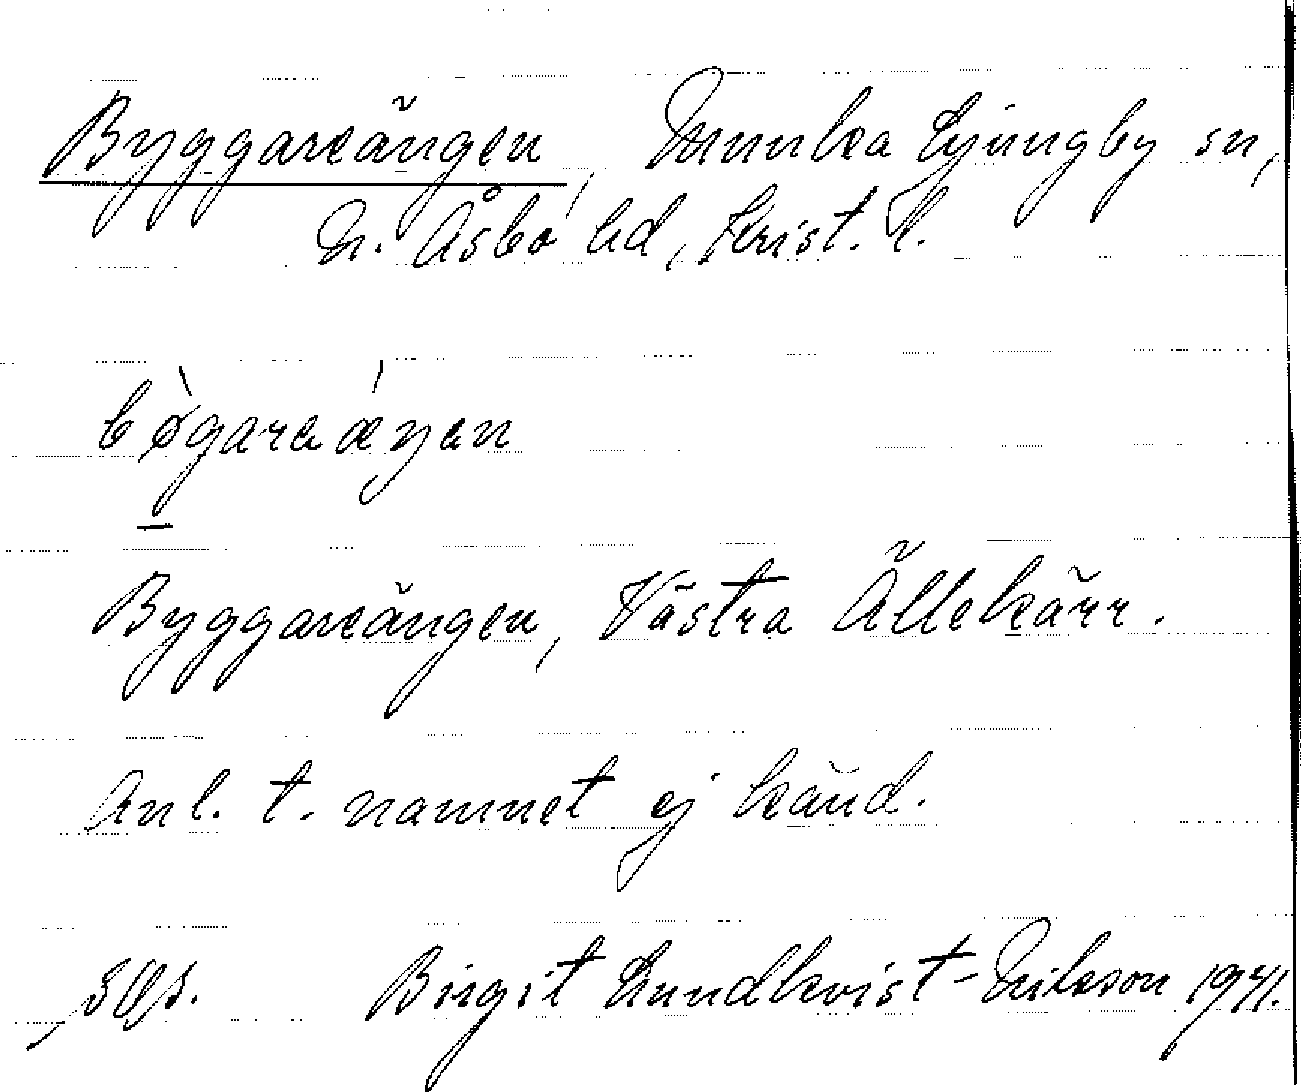 Byggareängen, Munka Ljungby sn,
N. Åsbo hd, Krist. l.
bøgaraæŋen
Byggareängen, Västra Ällekärr.
Anl. t. namnet ej känd.
Birgit Lundkvist-Erikson 1941.